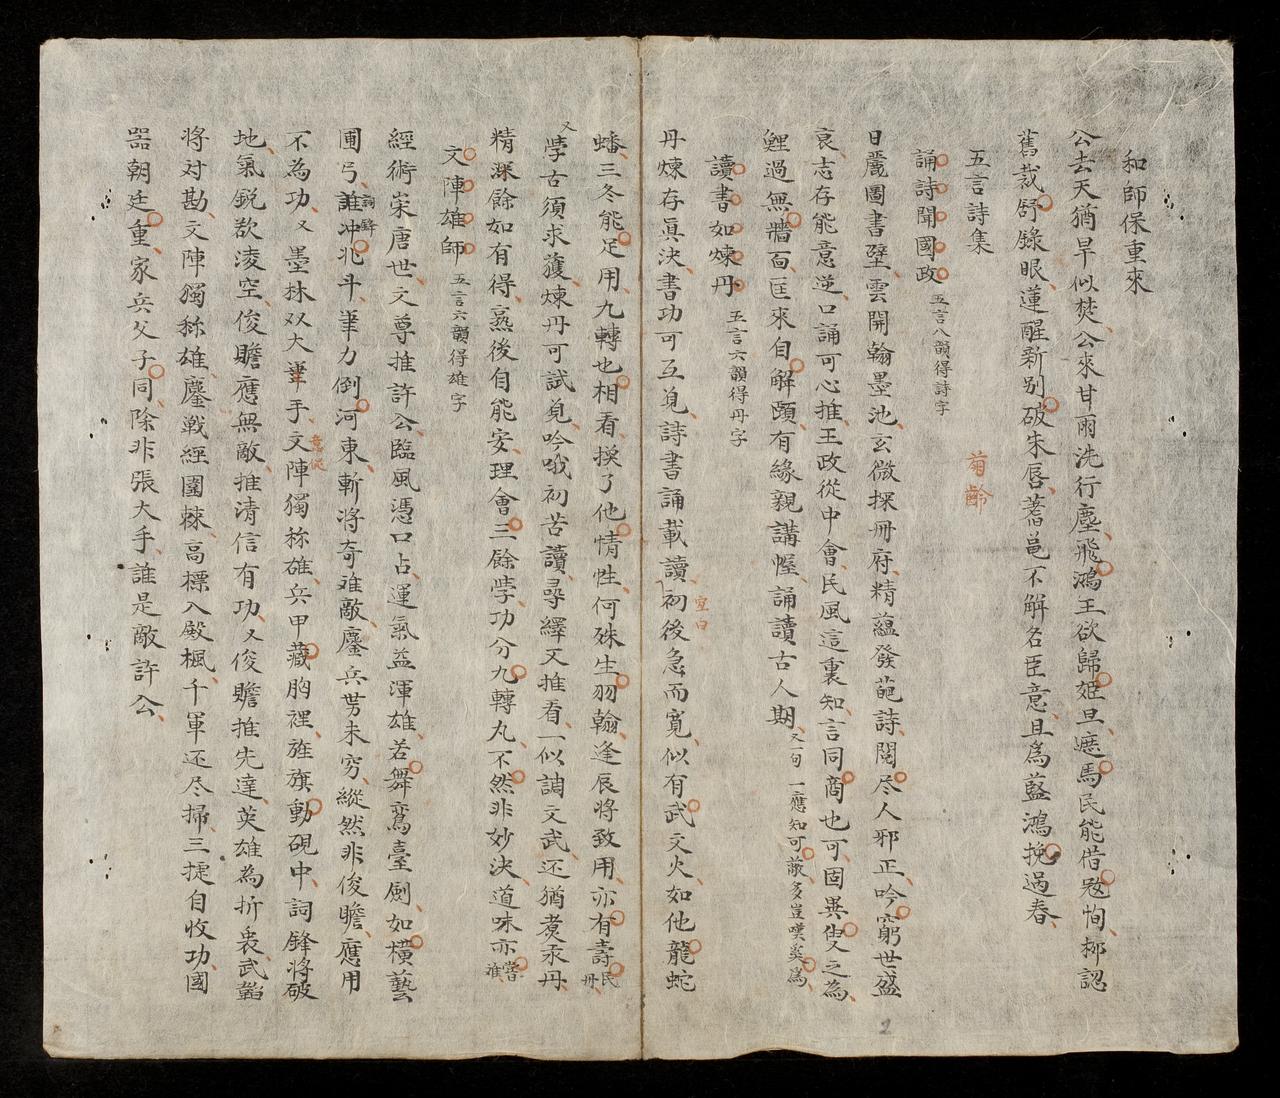 和師保重來
公去天猶旱似焚公來甘雨洗行塵飛鴻王欲歸姬旦遮馬民能借寇恂柳認
舊裁舒錄眼蓮醒新別破朱唇蓍邑不解名臣意且為藍鴻挽過春
五言詩集
菊齡
誦詩聞國政 五言八韻得詩字
日麗圖書壁雲開翰墨池玄微探冊府精蘊發葩詩閱尽人邪正吟窮世盛
衰志存能意逆口誦可心推王政從中會民風這裏知言同商也可固異叟之為
鯉過無牆面匡來自解頤有緣親講幄誦讀古人期 又一句 一應知可蔽多豈嘆奚為
讀書如煉丹 五言六韻得丹字
丹煉存眞決書功可互覓詩書誦載讀初後急而寬似有武文火如他龍蛇
空白
蟠三冬能足用九轉也相看換了他情性何殊生羽翰逢辰將致用亦有壽民丹
又 學古須求獲煉丹可試覓吟哦初苦讀尋繹又推看一似調文武还猶煮汞丹
精深餘如有得熟後自能安理會三餘學功分九轉丸不然非妙決道味亦嘗难
文陣雄師 五言六韻得雄字
經術崇唐世文尊推許公臨風憑口占運氣益渾雄若舞鸞臺劍如橫藝
圃弓誰冲北斗筆力倒河東斬將奇难敵鏖兵势未穷縱然非俊瞻應用
詞鋒
不為功又墨林双大筆手文陣獨称雄兵甲藏胸裡旌旗動硯中詞鋒將破
意從
地氣銳欲淩空俊瞻應無敵推清信有功又俊瞻推先達英雄為折衷武韜
將对勘文陣獨称雄鏖戰經圍棘高標入殿楓千軍还尽掃三捷自收功國
器朝廷重家兵父子同除非張大手誰是敵許公
2